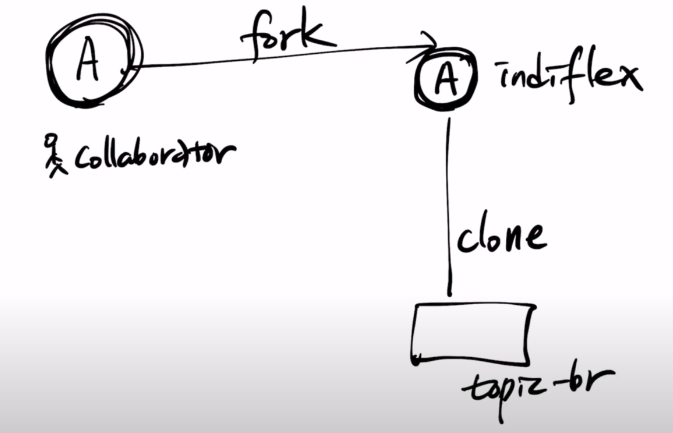 A
fork
A
indiflex
collaborator
clone
topic-br